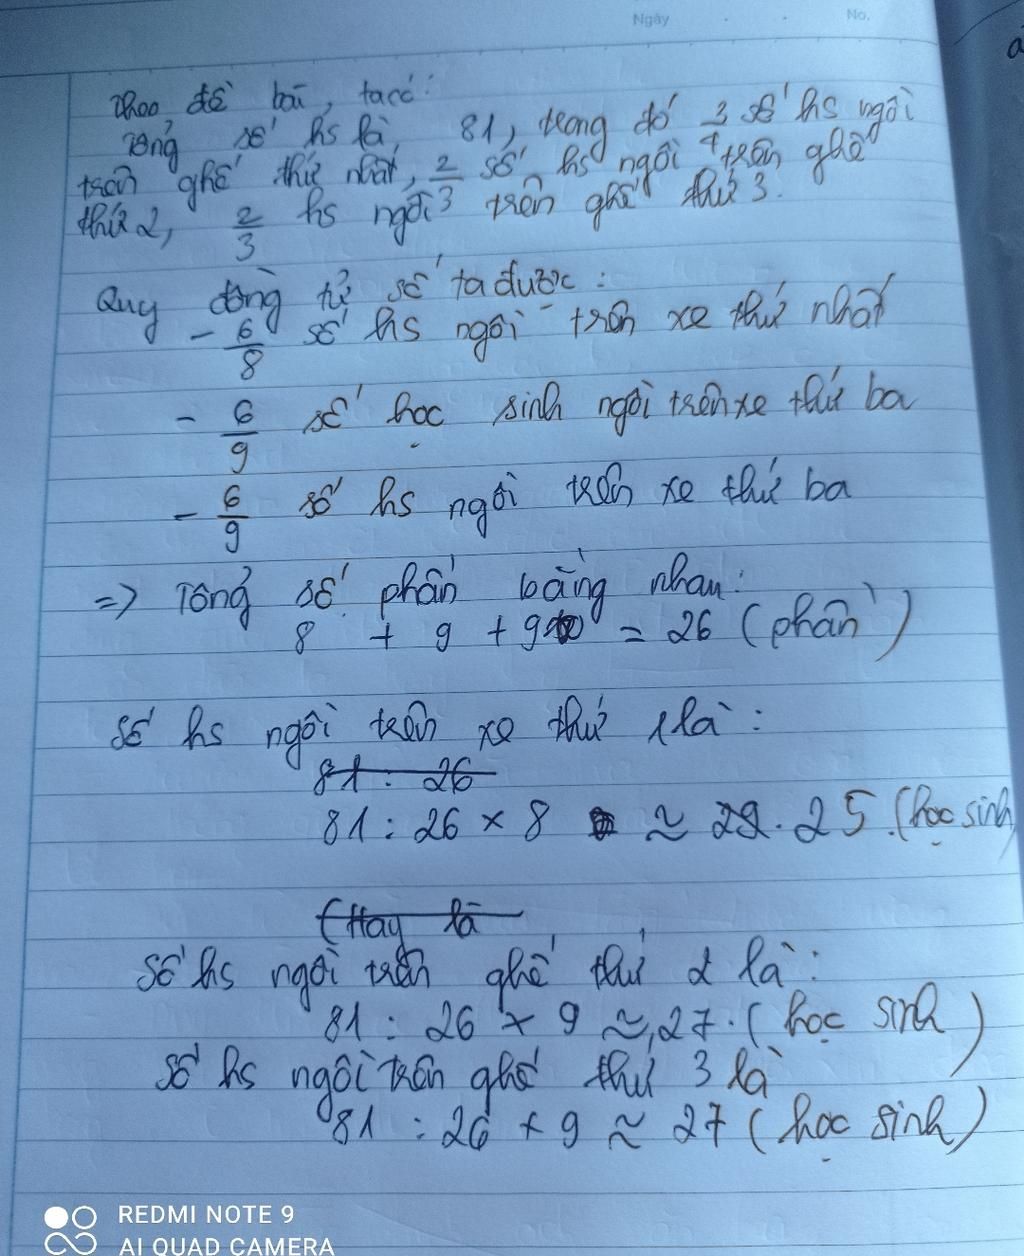 Ngày No.
Theo đề bài, ta có:
Tổng số hs là 81, trong đó 3/4 số hs ngồi
trên ghế thứ nhất, 2/3 số hs ngồi trên ghế
thứ 2, 2/3 hs ngồi trên ghế thứ 3.
Quy đồng tử số ta được:
- 6/8 số hs ngồi trên xe thứ nhất
- 6/9 số học sinh ngồi trên xe thứ ba
- 6/9 số hs ngồi trên xe thứ ba
=> Tổng số phần bằng nhau:
8 + 9 + 9 = 26 (phần)
Số hs ngồi trên xe thứ 1 là:
81 : 26
81 : 26 × 8 ≈ 25 (học sinh)
(Hay là
Số hs ngồi trên ghế thứ 2 là:
81 : 26 × 9 ≈ 27 (học sinh)
Số hs ngồi trên ghế thứ 3 là
81 : 26 × 9 ≈ 27 (học sinh)
REDMI NOTE 9
AI QUAD CAMERA